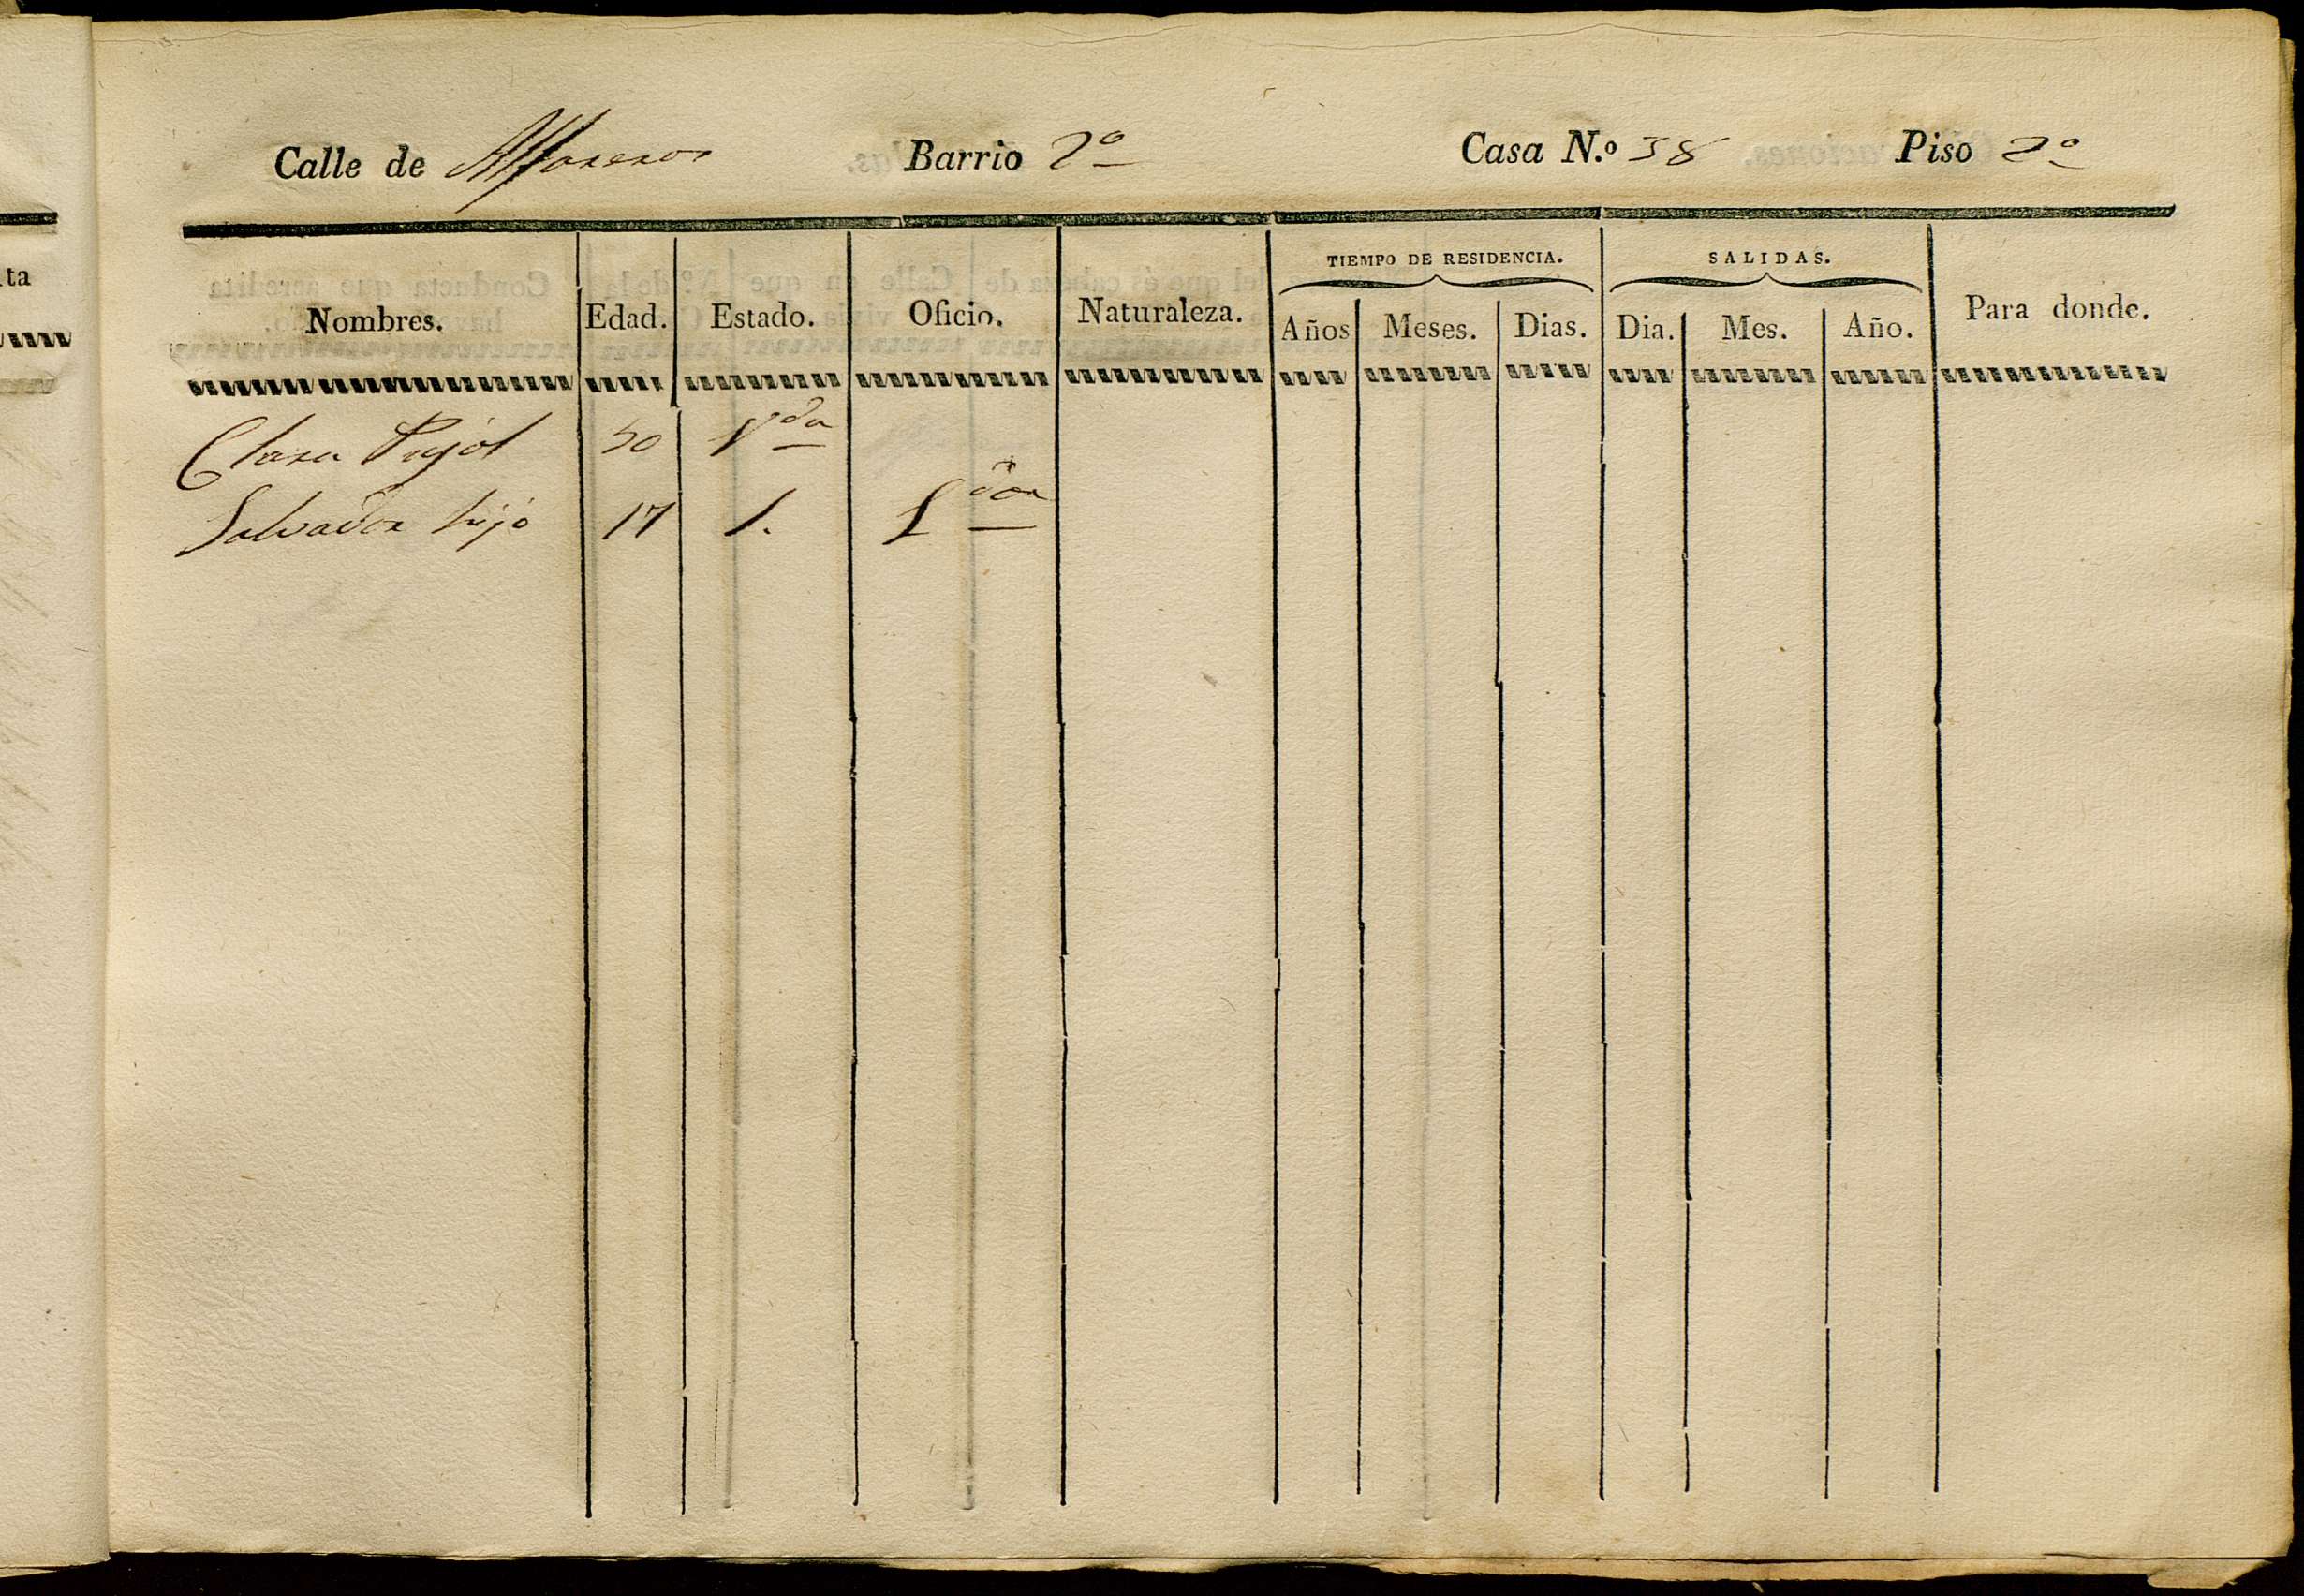 Calle de Alfareros Barrio 2º Casa N.º 38 Piso 2º
TIEMPO DE RESIDENCIA. SALIDAS.
Nombres. Edad. Estado. Oficio. Naturaleza. Años Meses. Dias. Dia. Mes. Año. Para donde.
Clara Pujol 50 Vda
Salvador hijo 17 S.
ta